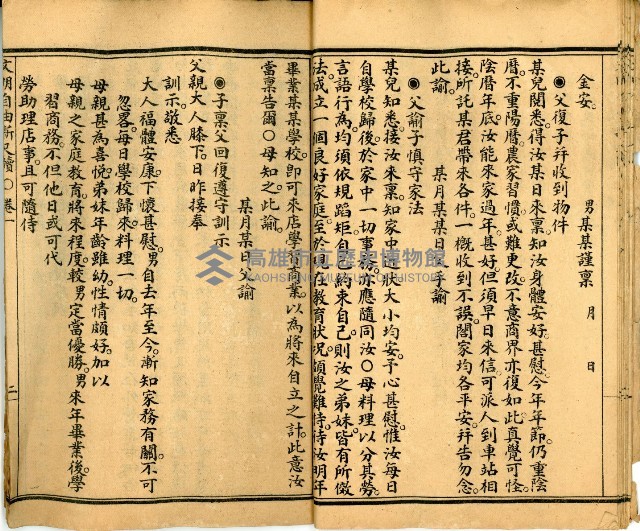 金安。
男某某謹稟　月　日
◉父復子並收到物件
某兒閱悉。得汝某日來稟。知汝身體安好。甚慰。今年年節。仍重陰
曆。不重陽曆。農家習慣。或難更改。不意商界亦復如此。真覺可怪。
陰曆年底。汝能來家過年甚好。但須早日來信。可派人到車站相
接。所託某君帶來各件。一概收到不誤。閤家均各平安。並告勿念
此諭。
某月某某日父手諭
◉父諭子慎守家法
某兒知悉。接汝來稟。知家中近狀。大小均安。予心甚慰。惟汝每日
自學校歸後。於家中一切事務。亦應隨同汝〇母料理。以分其勞。
言語行為。均須依規蹈矩。自己約束自己。則汝之弟妹。皆有所傚
法。成立一個良好家庭。至於店在教育狀况。頗覺難侍。待汝明年
畢業某某學校。卽可來店學習商業。以為將來自立之計。此意汝
當稟告爾〇母知之。此諭。
某月某日父諭
◉子稟父回復遵守訓示
父親大人膝下。日昨接奉
訓示。敬悉
大人福體安康。下懷甚慰。男自去年至今。漸知家務有關。不可
忽畧。每日學校歸來。料理一切。
母親甚為喜悅。弟妹年齡雖幼。性情頗好。加以
母親之家庭教育。將來程度。較男定當優勝。男來年畢業後。學
習商務。不但他日或可代
勞助理店事。且可隨侍
文明自由新尺牘〇卷一
二
高雄市立歷史博物館
KAOHSIUNG MUSEUM OF HISTORY